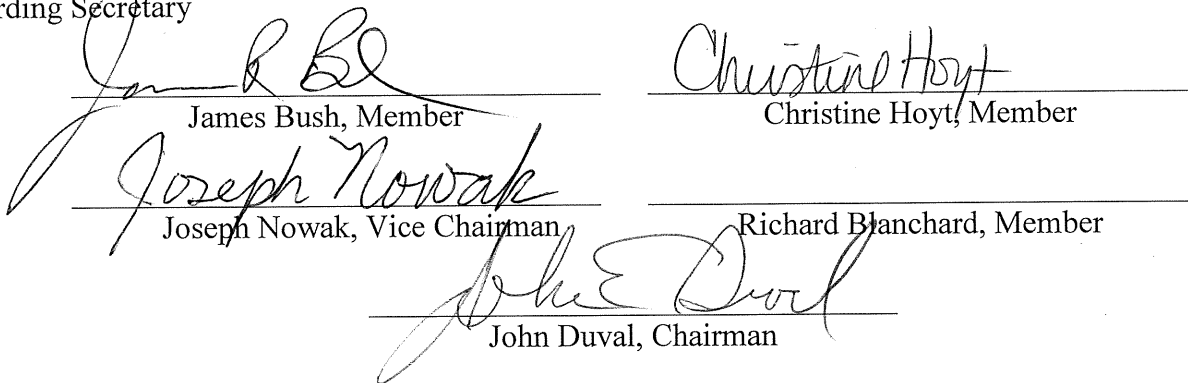 rding Secretary
James R Bush Christine Hoyt
James Bush, Member Christine Hoyt, Member
Joseph Nowak
Joseph Nowak, Vice Chairman Richard Blanchard, Member
John E Duval
John Duval, Chairman